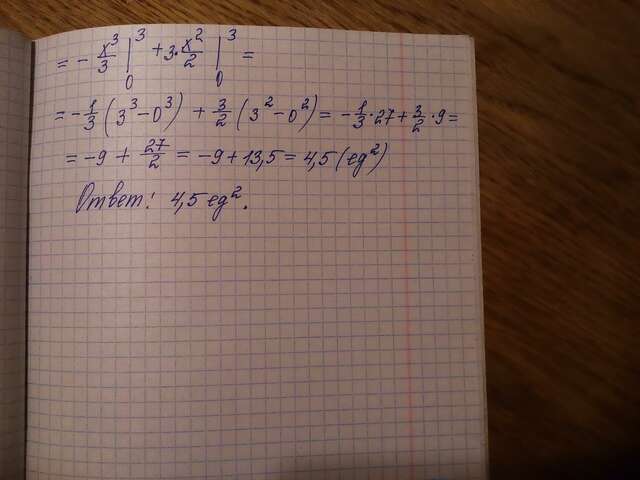 = - x³/3 |₀³ + 3·x²/2 |₀³ =
= -1/3 (3³-0³) + 3/2 (3²-0²) = -1/3·27+3/2·9=
= -9 + 27/2 = -9+13,5 = 4,5 (ед²)
Ответ: 4,5 ед².